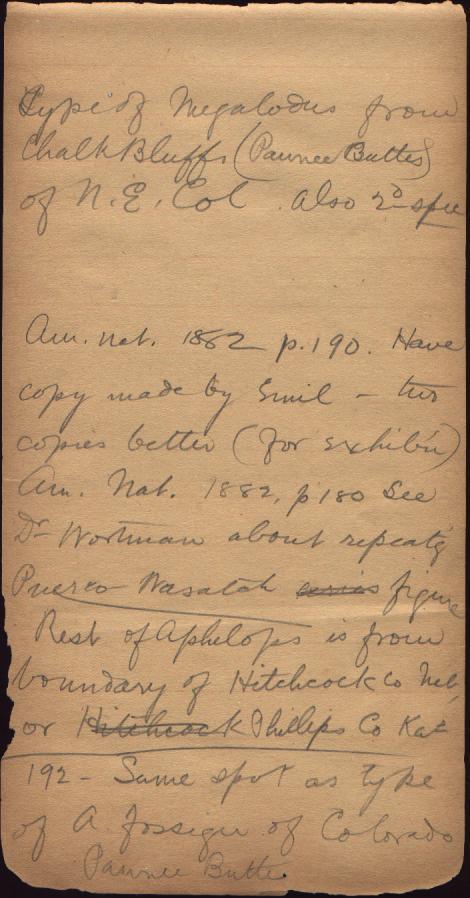 Type of Megalodus from
Chalk Bluffs (Pawnee Buttes)
of N.E. Col. Also 2d spec
Am. nat. 1882 p.190. Have
copy made by Emil - two
copies better (for exhib'n)
Am. Nat. 1882, p 180 See
Dr Wortman about repeatg
Puerco - Wasatch figure
Rest of Aphelops is from
boundary of Hitchcock Co Neb,
or Hitchcock Phillips Co
192 - Same spot as type
of A fossiger of Colorado
Pawnee Butte.